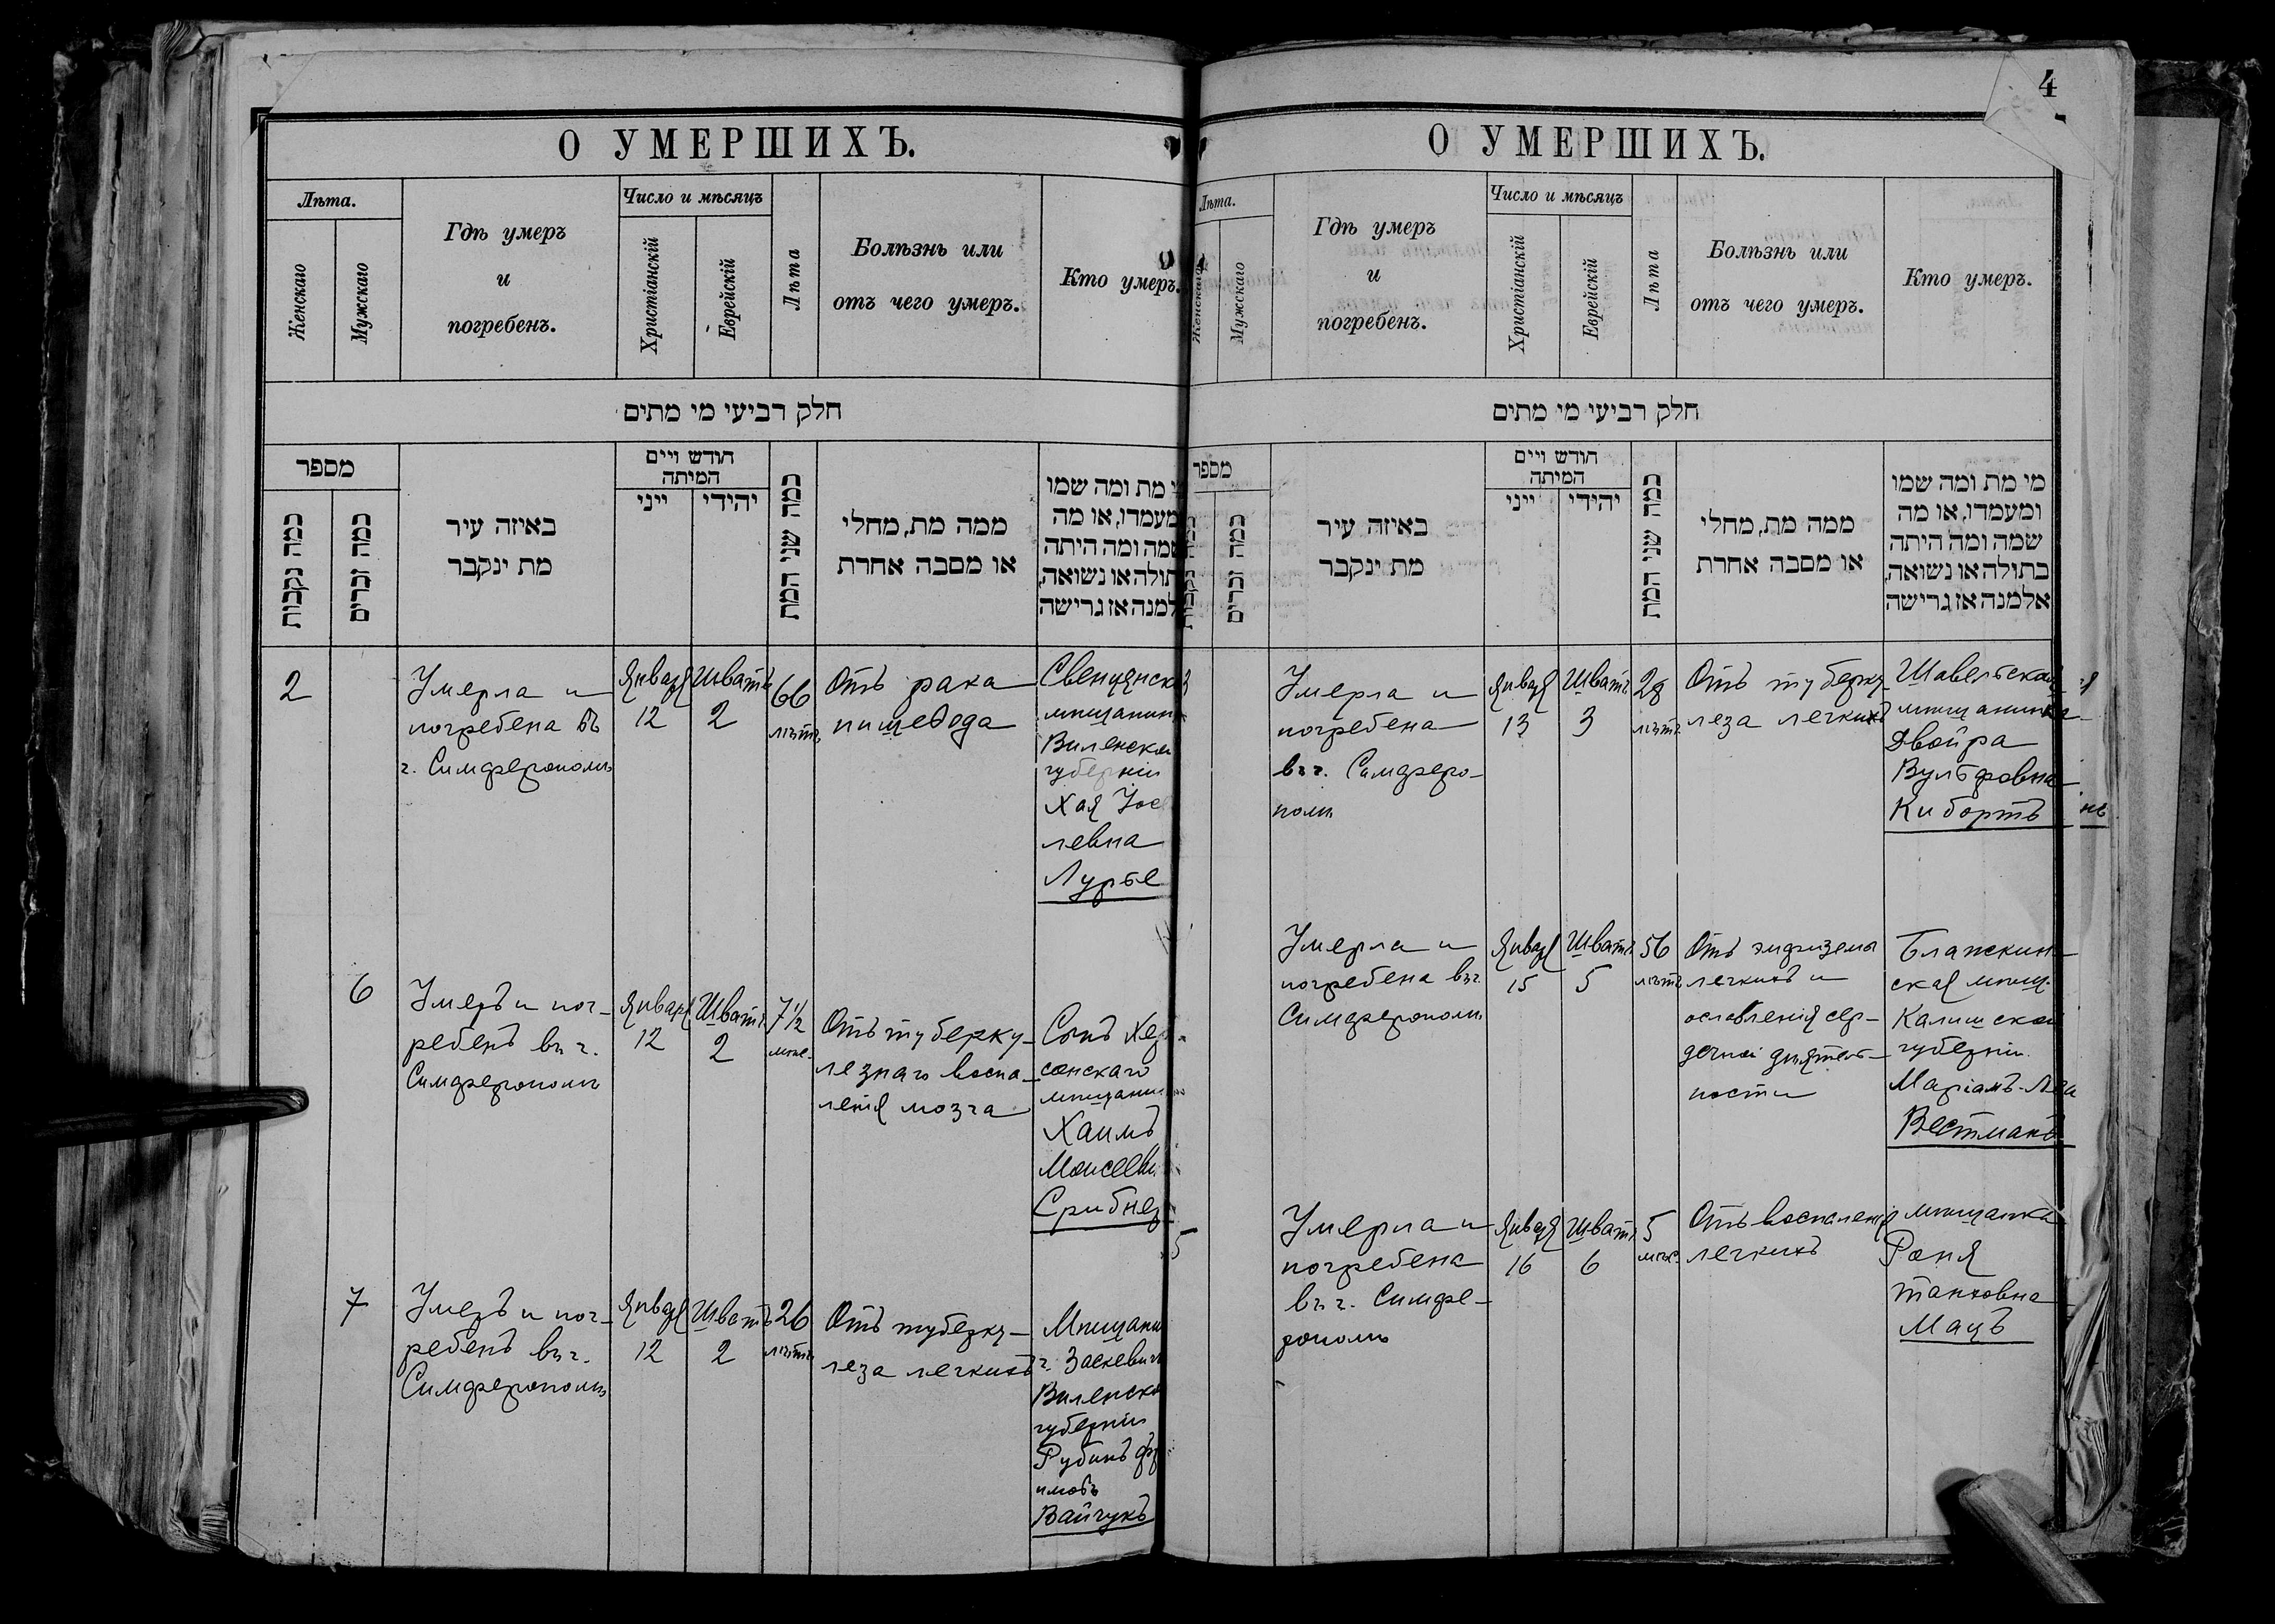 4
О УМЕРШИХЪ.
Лѣта.
Женскаго
Мужскаго
Гдѣ умеръ
и
погребенъ.
Число и мѣсяцъ
Христіанскій
Еврейскій
Лѣта
Болѣзнь или
отъ чего умеръ.
Кто умеръ.
חלק רביעי מי מתים
מספר
כמה נקבות
כמה זכרים
באיזה עיר
מת ינקבר
חודש ויים
המיתה
ייני
יהידי
כמה שני המת
ממה מת, מחלי
או מסבה אחרת
מת ומה שמו
ומה היתה
או נשואה,
אז גרישה
2
Умерла и
погребена въ
г. Симферополѣ
Январ
12
Шватъ
2
66
лѣтъ
Отъ рака
пищевода
Свенцянск
мѣщанин
Виленско
губерніи
Хая Іос
левна
Лурье
6
Умеръ и пог-
ребенъ въ г.
Симферополѣ
Январ
12
Шватъ
2
7½
мѣс.
Отъ туберку-
лезнаго воспа-
ленія мозга
Сынъ Хер
сонскаго
мѣщани
Хаимъ
Моисееви
Срибнер
7
Умеръ и пог-
ребенъ въ г.
Симферополѣ
Январ
12
Шватъ
2
26
лѣтъ
Отъ туберку-
леза легкихъ
Мѣщани
г.
Виленско
губерніи
Рубинъ
Вайчукъ
О УМЕРШИХЪ.
Лѣта.
Женскаго
Мужскаго
Гдѣ умеръ
и
погребенъ.
Число и мѣсяцъ
Христіанскій
Еврейскій
Лѣта
Болѣзнь или
отъ чего умеръ.
Кто умеръ.
חלק רביעי מי מתים
מספר
כמה זכרים
באיזה עיר
מת ינקבר
חודש ויים
המיתה
ייני
יהידי
כמה שני המת
ממה מת, מחלי
או מסבה אחרת
מי מת ומה שמו
ומעמדו, או מה
שמה ומה היתה
בתולה או נשואה,
אלמנה אז גרישה
3
Умерла и
погребена
въ г. Симферо-
полѣ
Январ
13
Шватъ
3
28
лѣтъ
Отъ туберку-
леза легкихъ
Шавельская
мѣщанинка
Двойра
Вульфовна
Кибортъ
Умерла и
погребена въ г.
Симферополѣ
Январ
15
Шватъ
5
56
лѣтъ
Отъ эмфиземы
легкихъ и
ослабленія сер-
дечной дѣятель-
ности
ская мѣщ.
Калишской
губерніи
Маріамъ-Леа
Вестманъ
5
Умерла и
погребена
въ г. Симфе-
рополѣ
Января
16
Шватъ
6
5
мѣс.
Отъ воспаленія
легкихъ
мѣщанка
Роня
Танховна
Мацъ